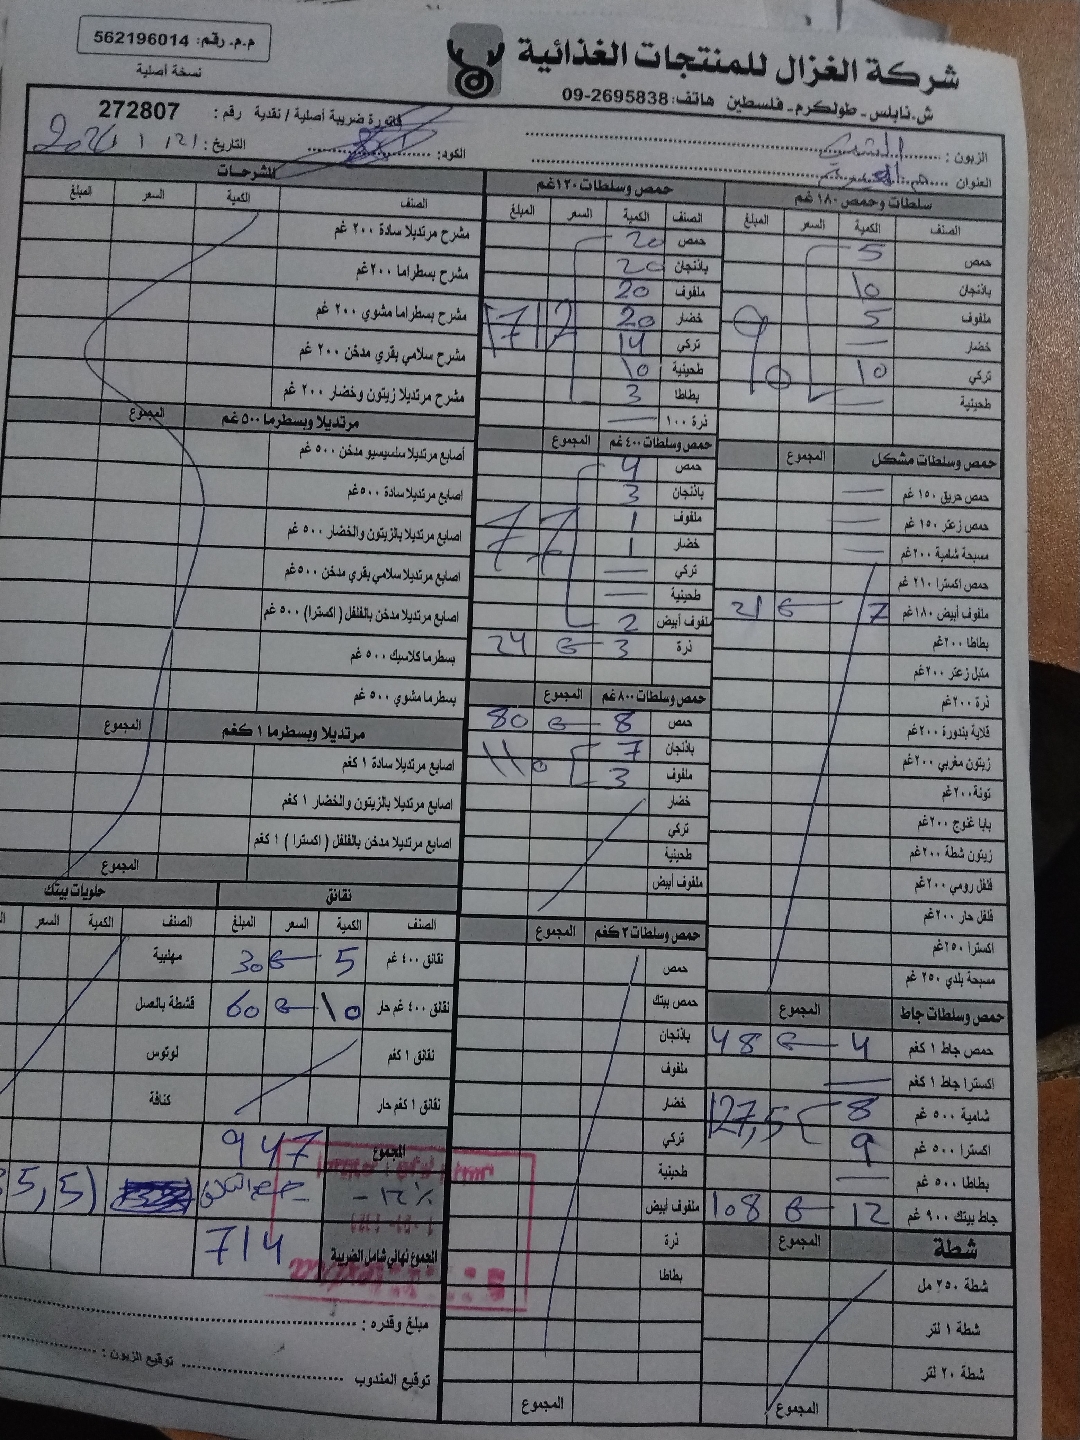 م.م. رقم: 562196014
نسخة أصلية
شركة الغزال للمنتجات الغذائية
ش.نابلس - طولكرم - فلسطين هاتف: 09-2695838
فاتورة ضريبية أصلية / نقدية رقم: 272807
الزبون:
الكود:
التاريخ: 21 / 1 /
العنوان
سلطات وحمص ١٨٠ غم
الصنف الكمية السعر المبلغ
حمص 5
باذنجان 10
ملفوف 5
خضار —
تركي 10
طحينية —
90
حمص وسلطات مشكل المجموع
حمص حريق ١٥٠ غم —
حمص زعتر ١٥٠ غم —
مسبحة شامية ٢٠٠غم —
حمص اكسترا ٢١٠ غم
ملفوف أبيض ١٨٠غم 7 21
بطاطا ٢٠٠غم
متبل زعتر ٢٠٠غم
ذرة ٢٠٠غم
قلاية بندورة ٢٠٠غم
زيتون مغربي ٢٠٠غم
تونة ٢٠٠غم
بابا غنوج ٢٠٠غم
زيتون شطة ٢٠٠غم
فلفل رومي ٢٠٠غم
فلفل حار ٢٠٠غم
اكسترا ٢٥٠غم
مسبحة بلدي ٢٥٠ غم
حمص وسلطات جاط المجموع
حمص جاط ١ كغم 4 48
اكسترا جاط ١ كغم —
شامية ٥٠٠ غم 8
اكسترا ٥٠٠ غم 9
127,5
بطاطا ٥٠٠ غم —
جاط بيتك ٩٠٠ غم 12 108
شطة المجموع
شطة ٢٥٠ مل
شطة ١ لتر
شطة ٢٠ لتر
المجموع
حمص وسلطات ١٢٠غم
الصنف الكمية السعر المبلغ
حمص 20
باذنجان 20
ملفوف 20
خضار 20
تركي 14
طحينية 10
بطاطا 3
ذرة ١٠٠ —
حمص وسلطات ٤٠٠ غم المجموع
حمص 4
باذنجان 3
ملفوف 1
خضار 1
تركي —
طحينية —
ملفوف أبيض 2
77
ذرة 3 24
حمص وسلطات ٨٠٠ غم المجموع
حمص 8 80
باذنجان 7
ملفوف 3
110
خضار
تركي
طحينية
ملفوف أبيض
حمص وسلطات ٢ كغم المجموع
حمص
حمص بيتك
باذنجان
ملفوف
خضار
تركي
طحينية
ملفوف أبيض
ذرة
بطاطا
المجموع
المشرحات
الصنف الكمية السعر المبلغ
مشرح مرتديلا سادة ٢٠٠ غم
مشرح بسطراما ٢٠٠غم
مشرح بسطراما مشوي ٢٠٠ غم
مشرح سلامي بقري مدخن ٢٠٠ غم
مشرح مرتديلا زيتون وخضار ٢٠٠ غم
مرتديلا وبسطرما ٥٠٠ غم المجموع
أصابع مرتديلا سلسيسيو مدخن ٥٠٠ غم
اصابع مرتديلا سادة ٥٠٠غم
اصابع مرتديلا بالزيتون والخضار ٥٠٠ غم
اصابع مرتديلا سلامي بقري مدخن ٥٠٠غم
اصابع مرتديلا مدخن بالفلفل ( اكسترا ) ٥٠٠ غم
بسطرما كلاسيك ٥٠٠ غم
بسطرما مشوي ٥٠٠ غم
مرتديلا وبسطرما ١ كغم المجموع
اصابع مرتديلا سادة ١ كغم
اصابع مرتديلا بالزيتون والخضار ١ كغم
اصابع مرتديلا مدخن بالفلفل ( اكسترا ) ١ كغم
المجموع
نقانق
الصنف الكمية السعر المبلغ
نقانق ٤٠٠ غم 5 30
نقانق ٤٠٠ غم حار 10 60
نقانق ١ كغم
نقانق ١ كغم حار
حلويات بيتك
الصنف الكمية السعر
مهلبية
قشطة بالعسل
لوتوس
كنافة
المجموع 947
714 المجموع نهائي شامل الضريبة
مبلغ وقدره:
توقيع المندوب توقيع الزبون: